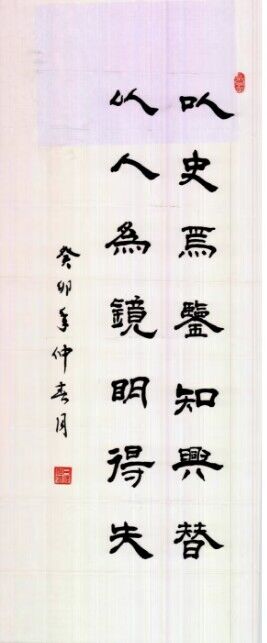 以史為鑒知興替
以人為鏡明得失
癸卯年仲春月